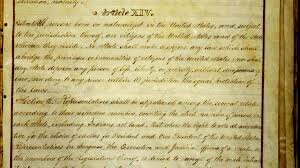 namely:
Article XIV.
Section 1. All persons born or naturalized in the United States, and subject
to the jurisdiction thereof, are citizens of the United States and of the State
wherein they reside. No State shall make or enforce any law which shall
abridge the privileges or immunities of citizens of the United States; nor shall
any State deprive any person of life, liberty, or property, without due process of
law; nor deny to any person within its jurisdiction the equal protection of
the laws.
Section 2. Representatives shall be apportioned among the several states
according to their respective numbers, counting the whole number of persons in
each State, excluding Indians not taxed. But when the right to vote at any
election for the choice of electors for President and Vice President of the United States,
Representatives in Congress, the Executive and Judicial officers of a State, or
the members of the Legislature thereof, is denied to any of the male